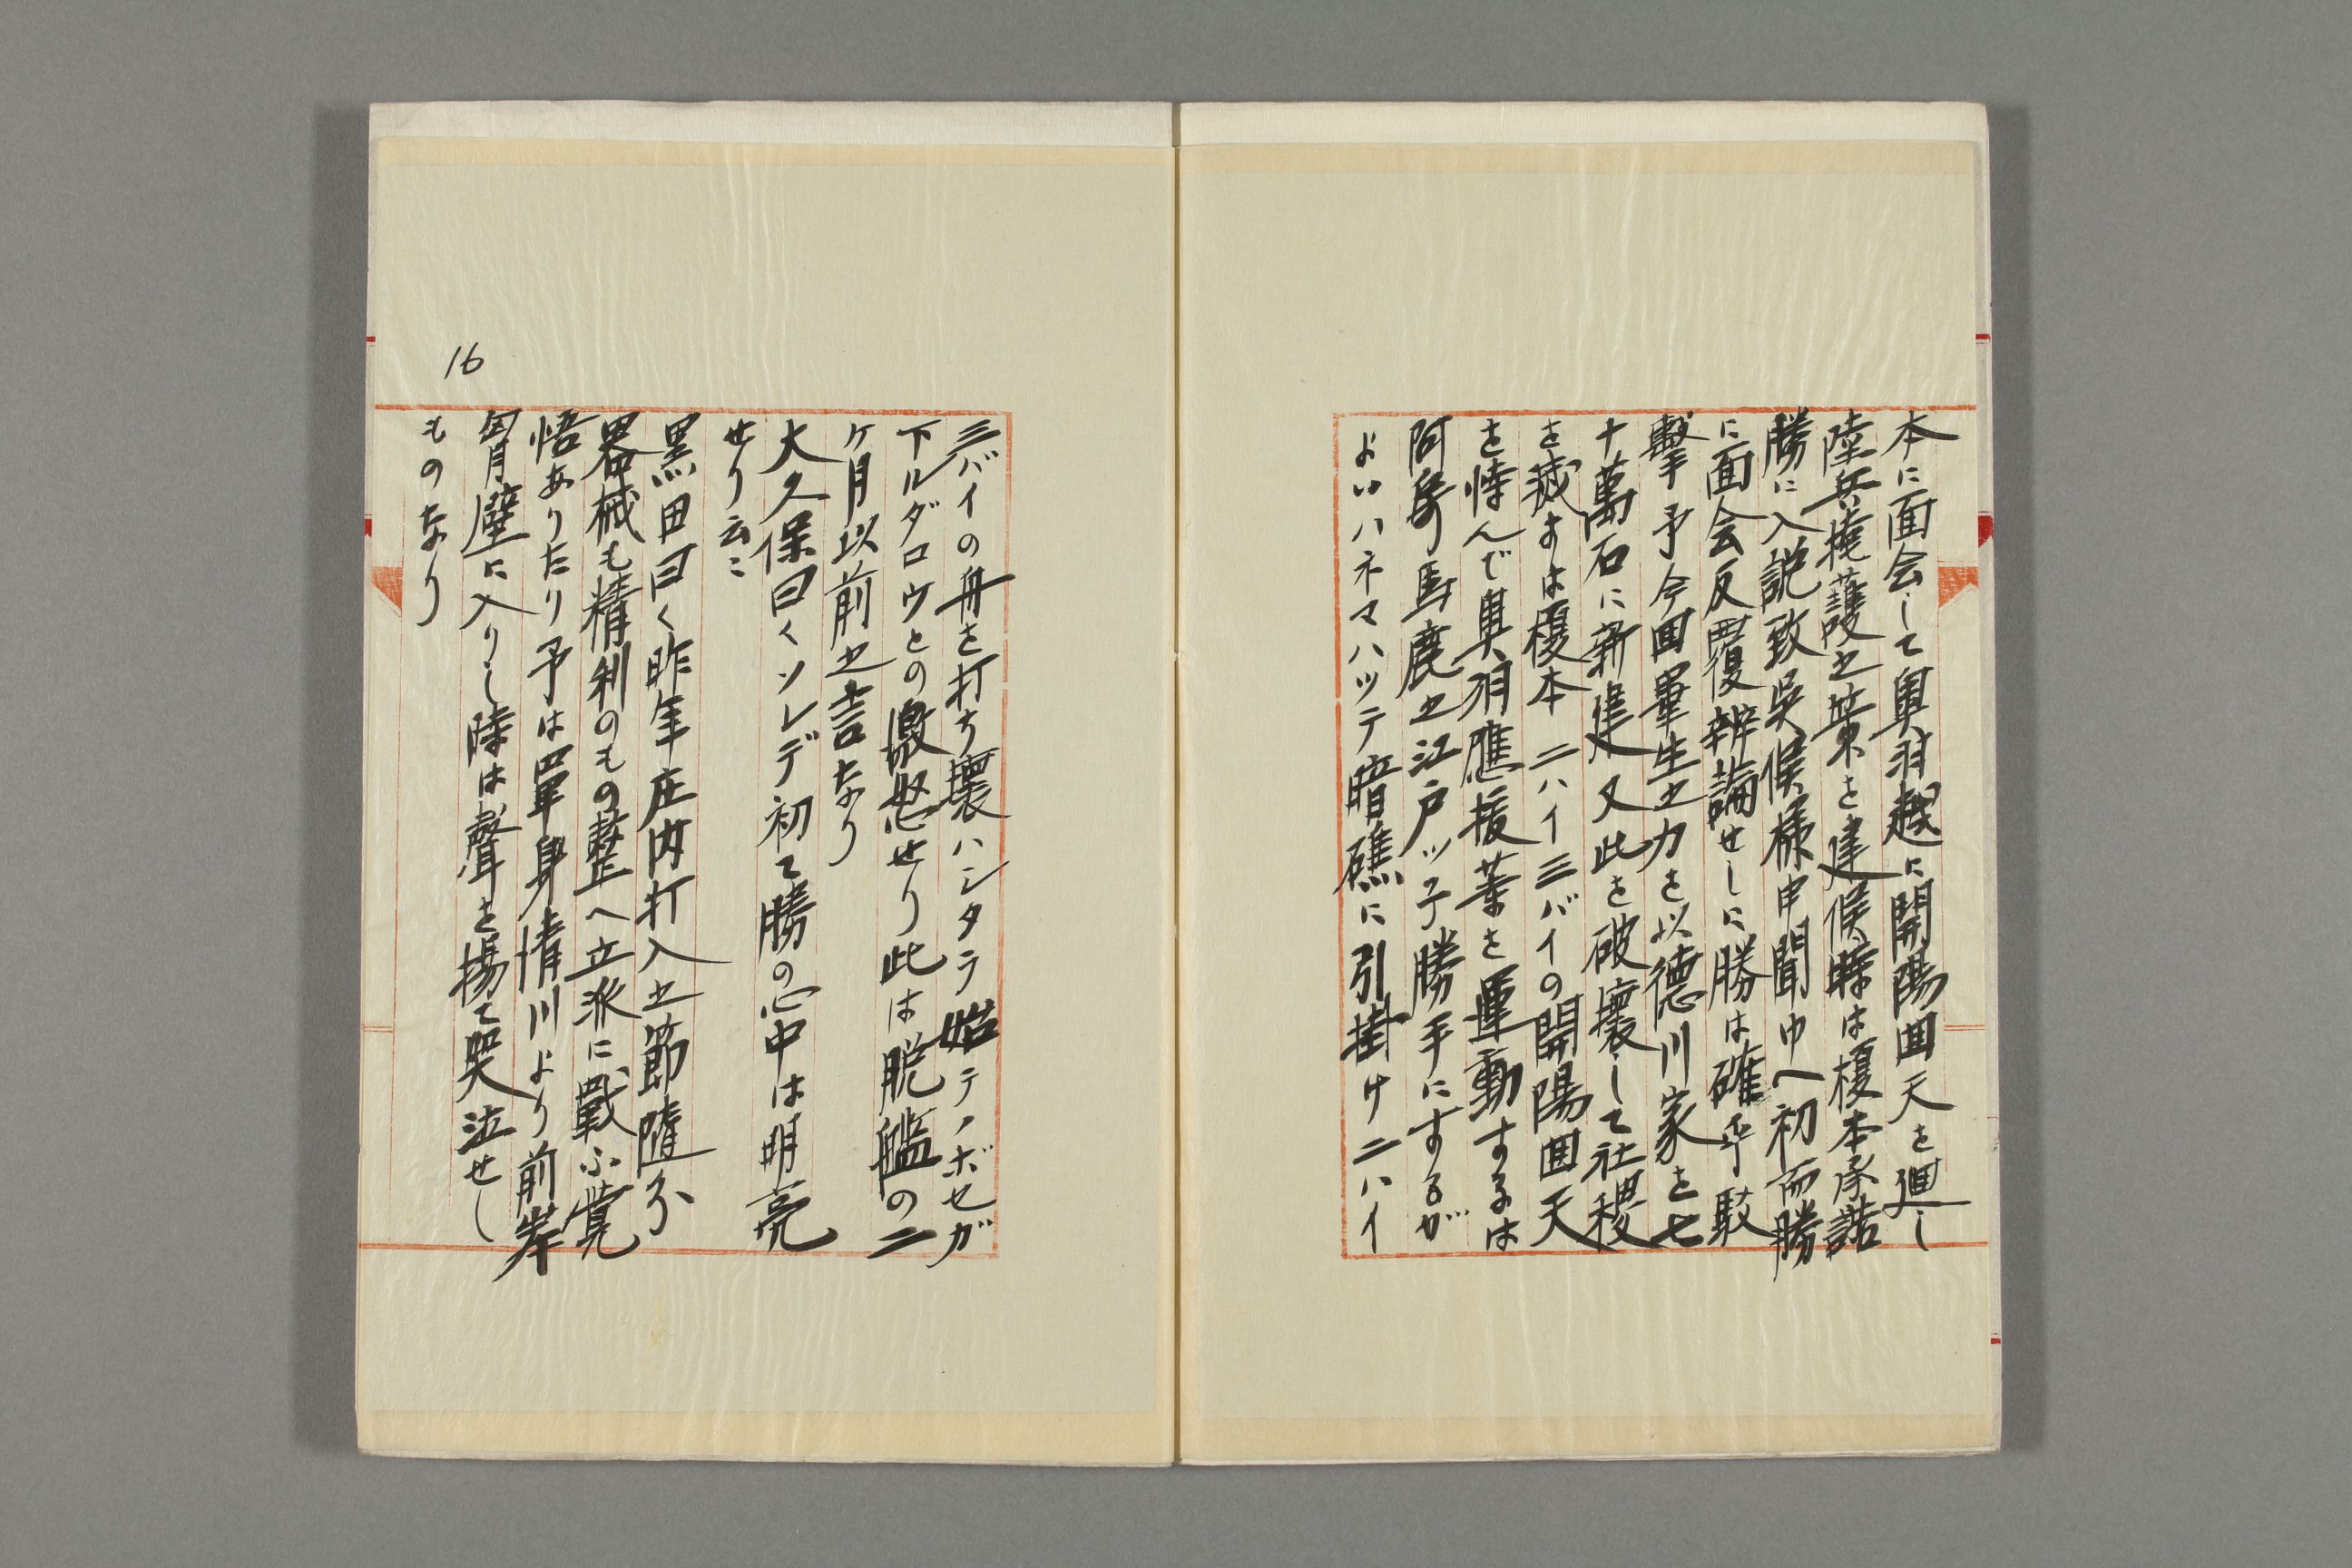 本に面会して奥羽越に開陽回天を廻し
陸兵擁護之策を建候時は榎本承諾
勝に入説致呉候様申聞中へ初而勝
に面会反覆辨論せしに勝は確乎駁
撃予今回畢生之力を以徳川家を七
十萬石に新建又此を破壊して社稷
を滅すは榎本二ハイ三バイの開陽回天
を恃んで奥羽應援葉を運動するは
阿房馬鹿之江戸ッ子勝手にするが
よいハネマハッテ暗礁に引掛け二ハイ
三バイの舟を打ち壊ハシタラ始テノボセガ
下ルダロウとの激怒せり此は脱艦の二
ケ月以前之言なり
大久保曰くソレデ初て勝の心中は明亮
せり云々
黒田曰く昨年庄内打入之節随分
器械も精利のもの整へ立派に戰ふ覚
悟ありたり予は單身清川より前岸
胸壁に入りし時は聲を揚て哭泣せし
ものなり
16